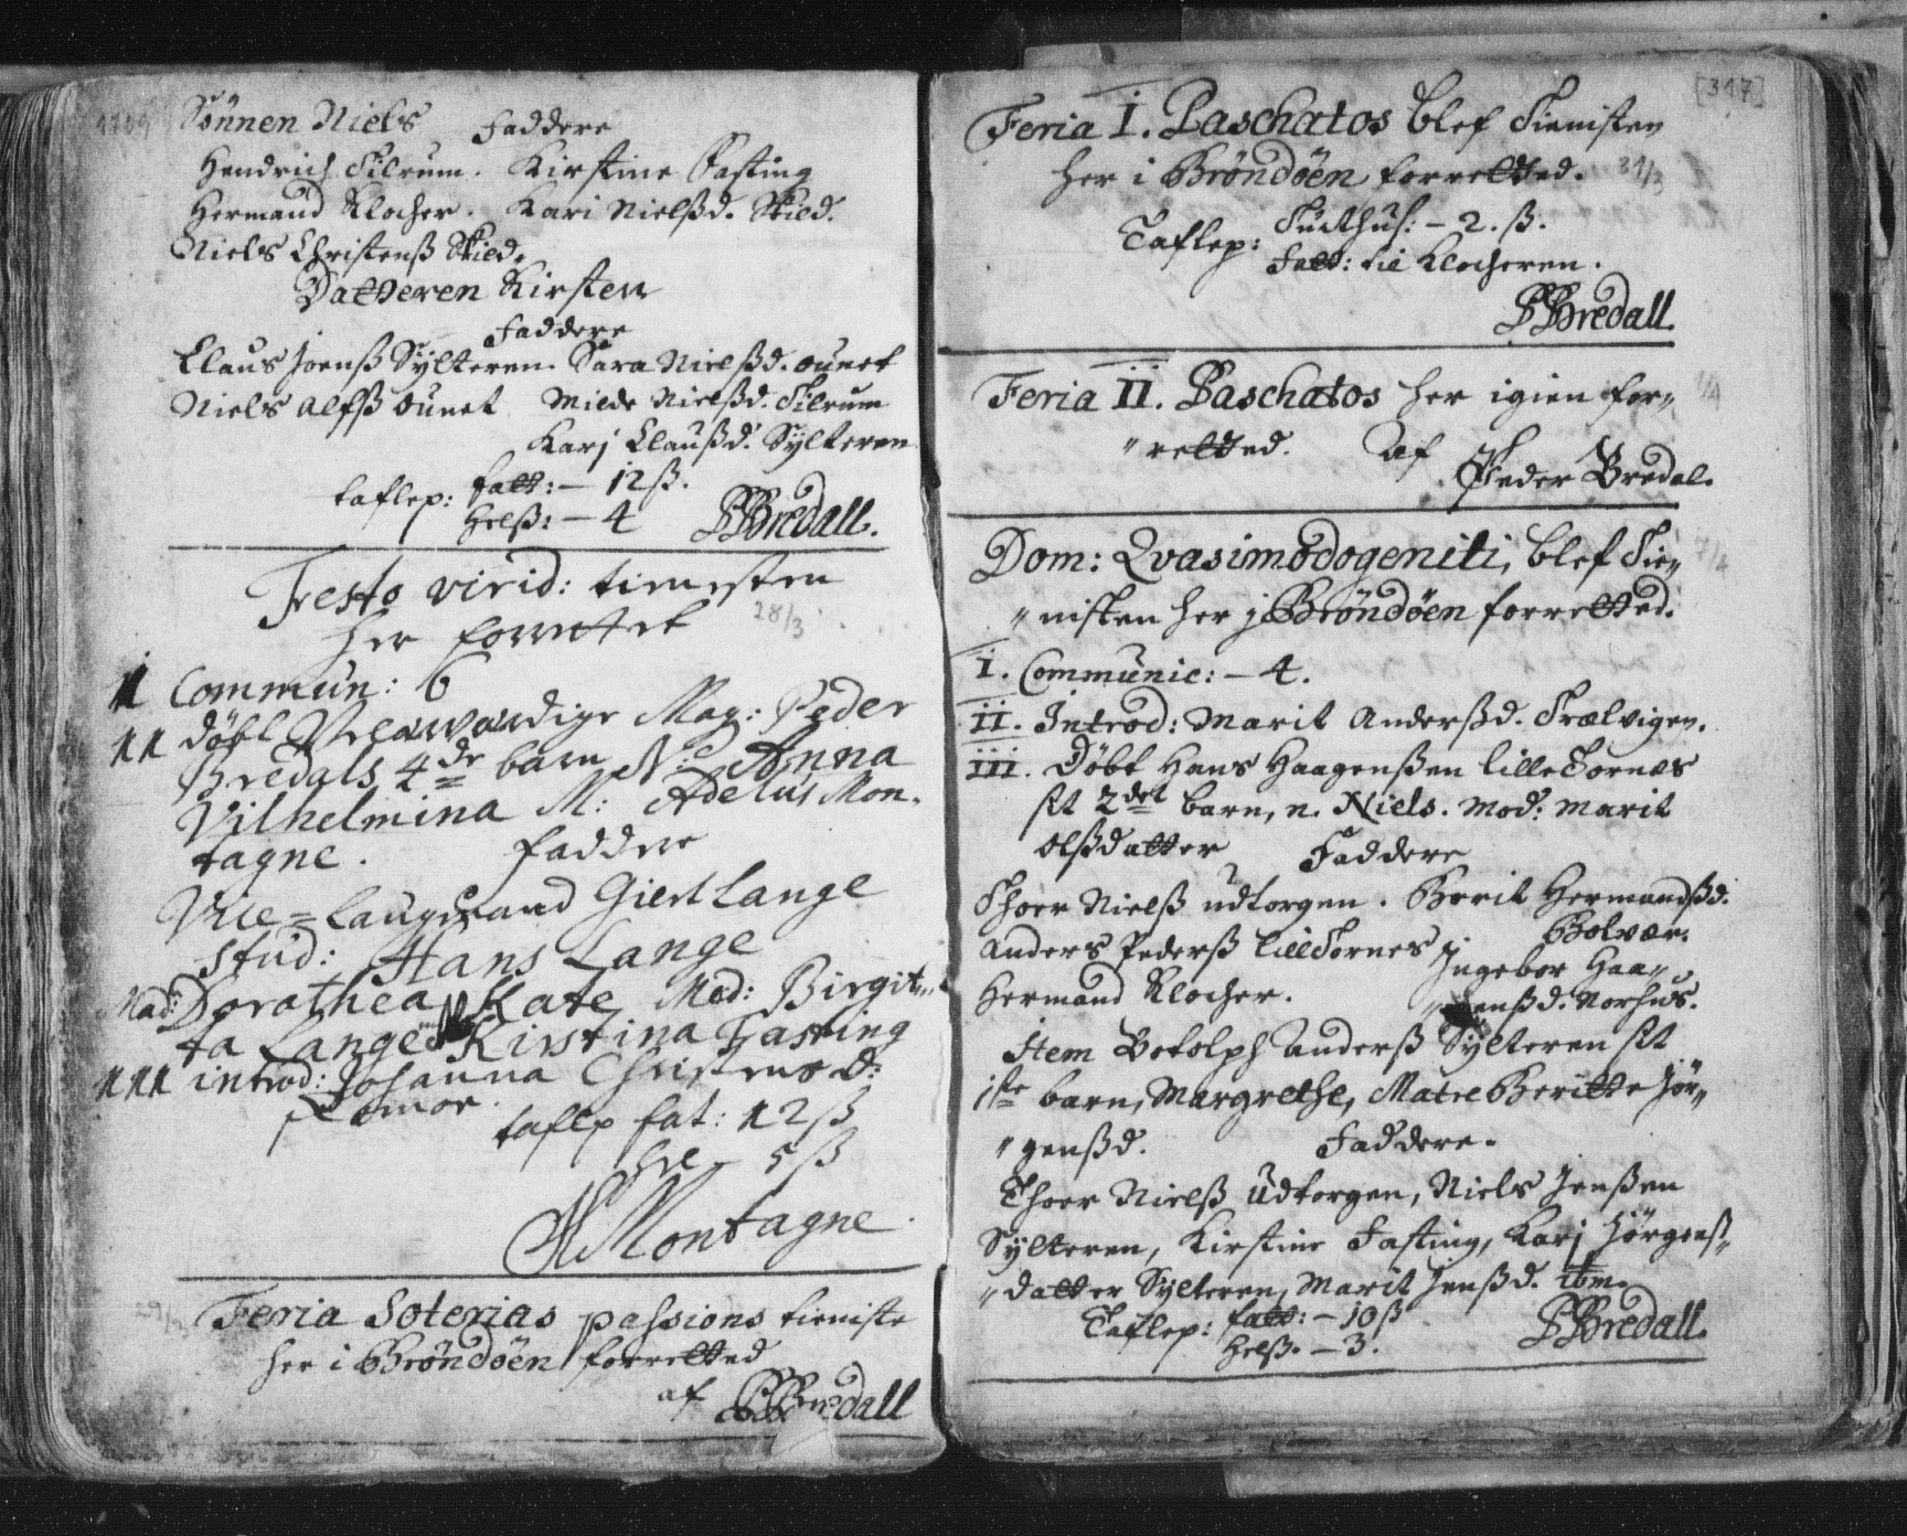 1709
Sönnen Niels Faddere
Hendrich Tilrum. Kirstine Fasting
Hermand Klocher. Kari Nielßd. Skild.
Niels Christenß Skild.
Datteren Kirsten
Faddere
Claus Joenß Sÿlteren. Sara Nielßd. ounet
Niels Alfß ounet Milde Nielßd. Tilrum
Karj Claußd. Sÿlteren
taflep: fatt: – 12 ß.
Helß: – 4 PBredall.
Festo virid: tienesten
her forrettet 28/3
I Commun: 6
II döbt Velærværdige Mag: Peder
Bredals 4de barn N: Anna
Vilhelmina M: Adelus Mon-
tagne. faddere
Vice=laugmand Giert Lange
stud: Hans Lange
Mad: Dorothea Kate Mad: Birgit-
ta Lange Kirstina Fasting
III introd: Johanna Christensd:
taflep fat: 12 ß
hel 5 ß
Montagne
Feria Soterias passions tieniste
her i Bröndöen forretted
af PBredall
[317]
Feria I. Paschatos blef Tienisten
her i Bröndöen forretted. 31/3
Taflep: Tuckthus: – 2. ß.
Fatt: til Klocheren.
PBredall.
Feria II. Paschatos her igien for„ 1/4
„retted. af Peder Bredal.
Dom: Qvasimodogeniti, blef Tie„ 7/4
„nisten her j Bröndöen forretted.
I. Communic: – 4.
II. Introd: Marit Anderßd. Trælvigen.
III. Döbt Hans Haagenßen lilleTornæs
sit 2det barn, n. Niels. Mod: Marit
Olßdatter Faddere
Thoer Nielß udtorgen. Berit Hermandßd.
Bolvær.
Anders Pederß lilleTornes Jngebor Haa„
Hermand Klocher. „genßd. Norhus.
Item Botolph Anderß Sÿlteren sit
1ste barn, Margrethe, Matre Beritte Jör„
„genßd. Faddere.
Thoer Nielß Udtorgen, Niels Jenßen
Sÿlteren, Kirstine Fasting, Karj Jörgenß„
„datter Sÿlteren, Marit Jenßd. ibm.
Taflep: fatt: – 10 ß
Helß. – 3. PBredall.